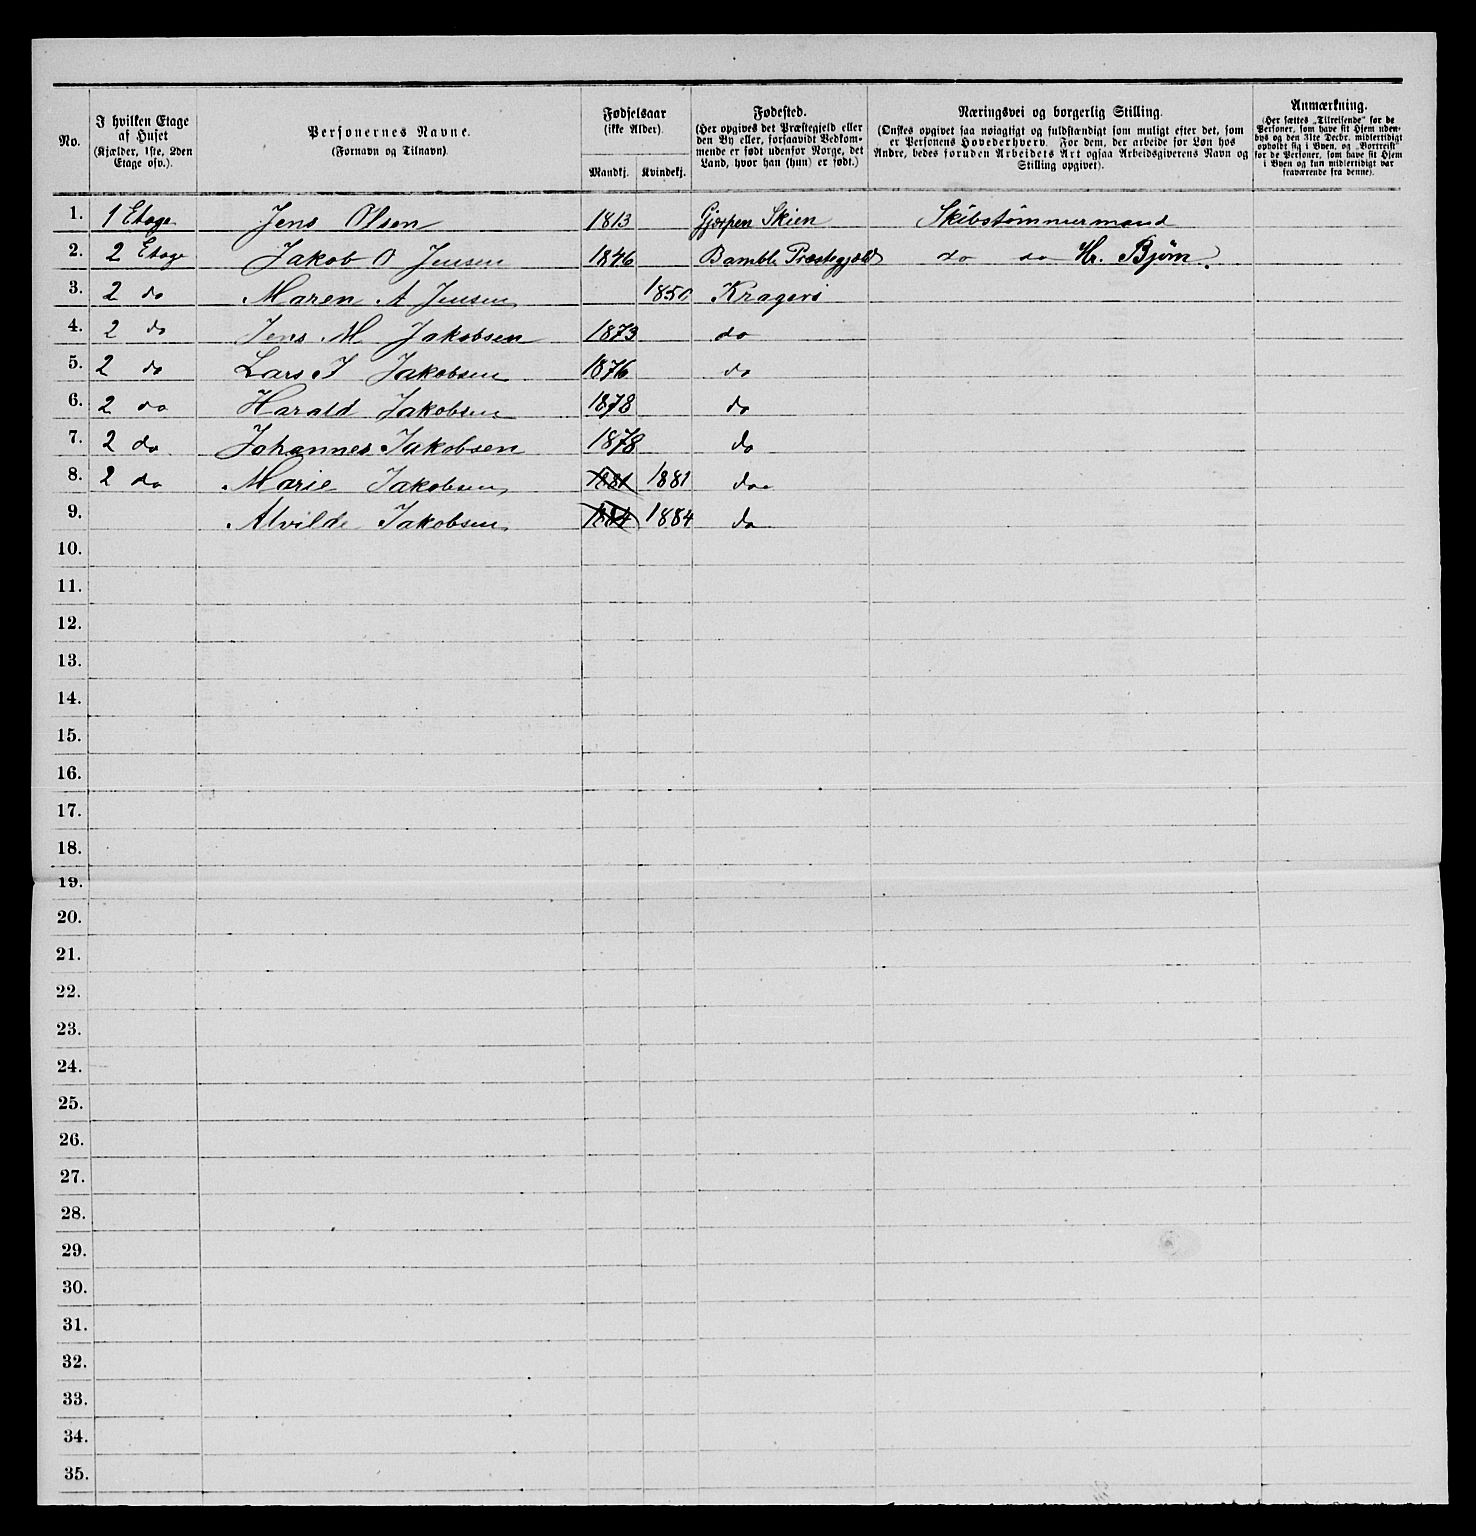 No.
I hvilken Etage af Huset (Kjælder, 1ste, 2den Etage osv.).
Personernes Navne. (Fornavn og Tilnavn)
Fødselsaar (ikke Alder).
Mandkj. Kvindekj.
Fødested. (Her opgives det Præstegjeld eller den By eller, forsaavidt Vedkommende er født udenfor Norge, det Land, hvor han (hun) er født.)
Næringsvei og borgerlig Stilling. (Ønskes opgivet saa nøiagtigt og fuldstændigt som muligt efter det, som er Personens Hovederhverv. For dem, der arbeide for Løn hos Andre, bedes foruden Arbeidets Art ogsaa Arbeidsgiverens Navn og Stilling opgivet).
Anmærkning. (Her sættes „Tilreisende“ for de Personer, som have sit Hjem udenbys og den 31te Decbr. midlertidigt opholdt sig i Byen, og „Bortreist“ for de Personer, som have sit Hjem i Byen og kun midlertidigt var fraværende fra denne).
1. 1 Etage Jens Olsen 1813 Gjerpen Skien Skibstømmermand
2. 2 Etage Jakob O Jensen 1846 Bamble Præstegjæld do do Hr. Bjørn.
3. 2 do Maren A Jensen 1850 Kragerö
4. 2 do Jens M Jakobsen 1873 do
5. 2 do Lars J Jakobsen 1876 do
6. 2 do Harald Jakobsen 1878 do
7. 2 do Johannes Jakobsen 1878 do
8. 2 do Marie Jakobsen 1881 1881 do
9. Alvilde Jakobsen 1884 1884 do
10.
11.
12.
13.
14.
15.
16.
17.
18.
19.
20.
21.
22.
23.
24.
25.
26.
27.
28.
29.
30.
31.
32.
33.
34.
35.